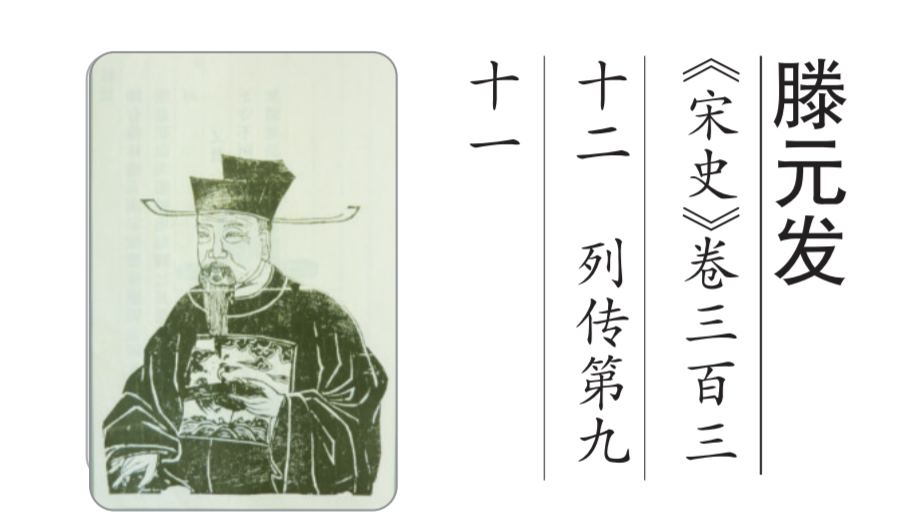 滕元发
《宋史》卷三百三
十二 列传第九
十一